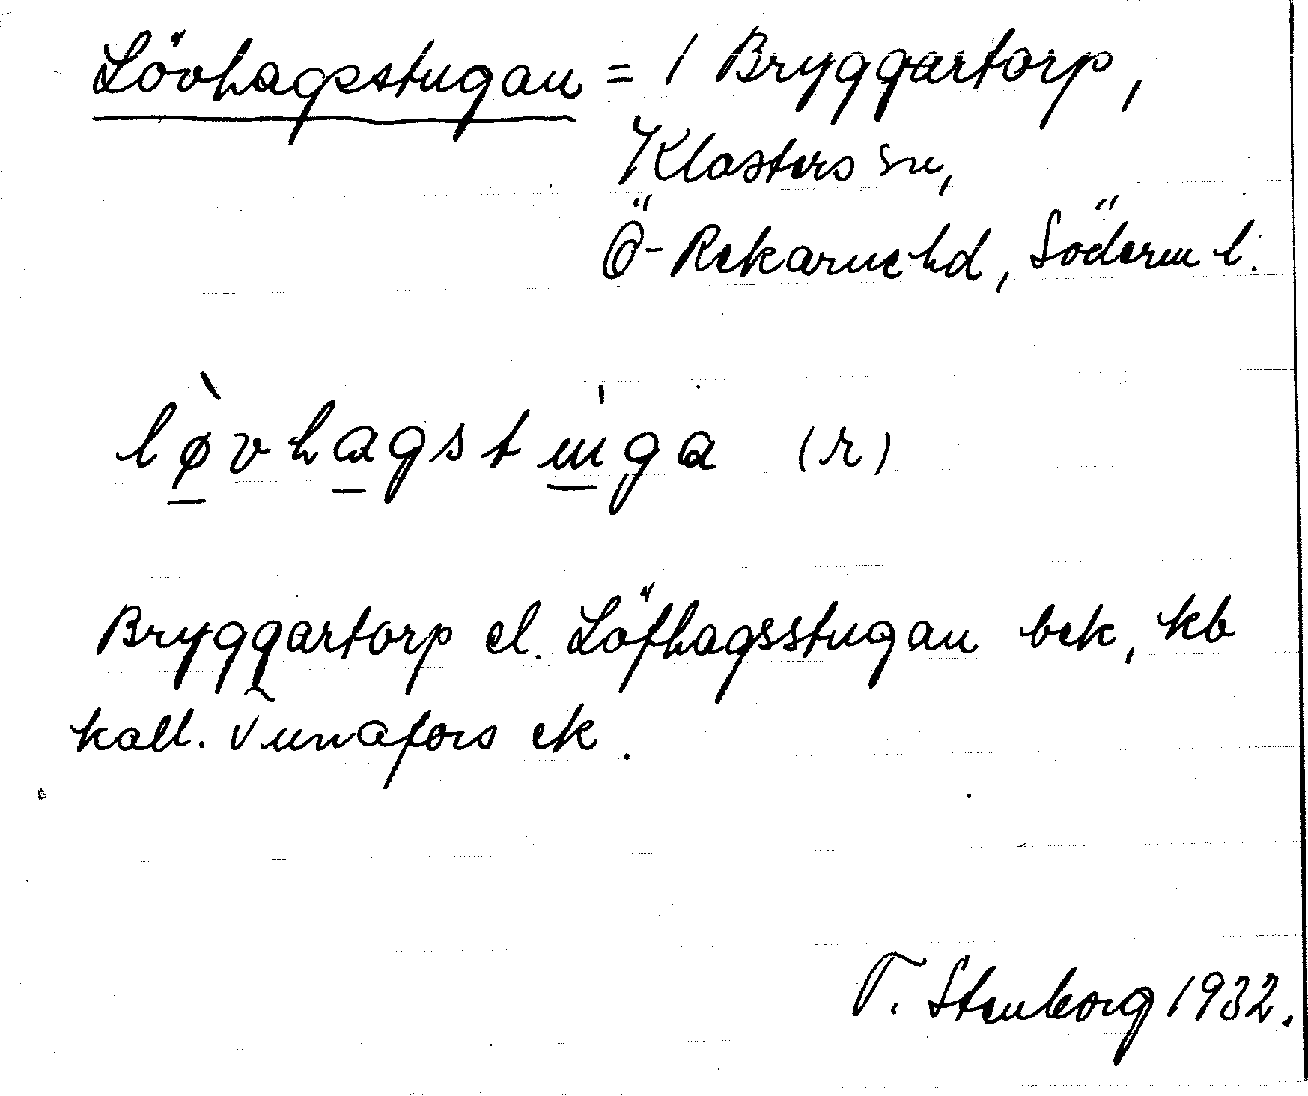 Lövhagsstugan = 1 Bryggartorp,
Klosters sn,
Ö-Rekarne hd, Söderml.
lø̀vhagstuga (r)
Bryggartorp el. Löfhagsstugan bek, kb
kall. Tunafors ek.
T. Stenborg 1932.